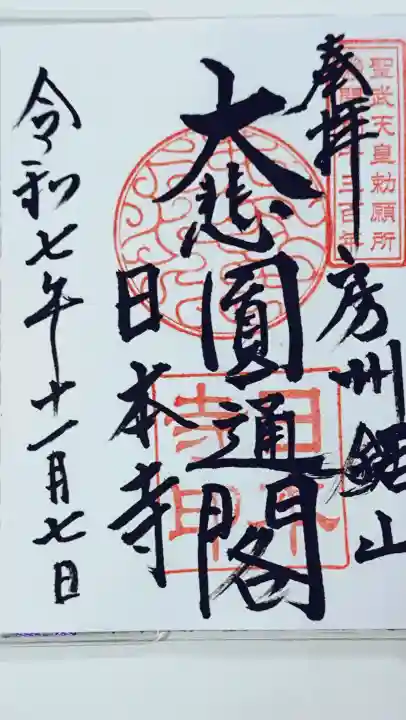 聖武天皇勅願所
奉拝 房州鋸山
大悲圓通閣
日本寺
日本寺印
令和七年十一月七日